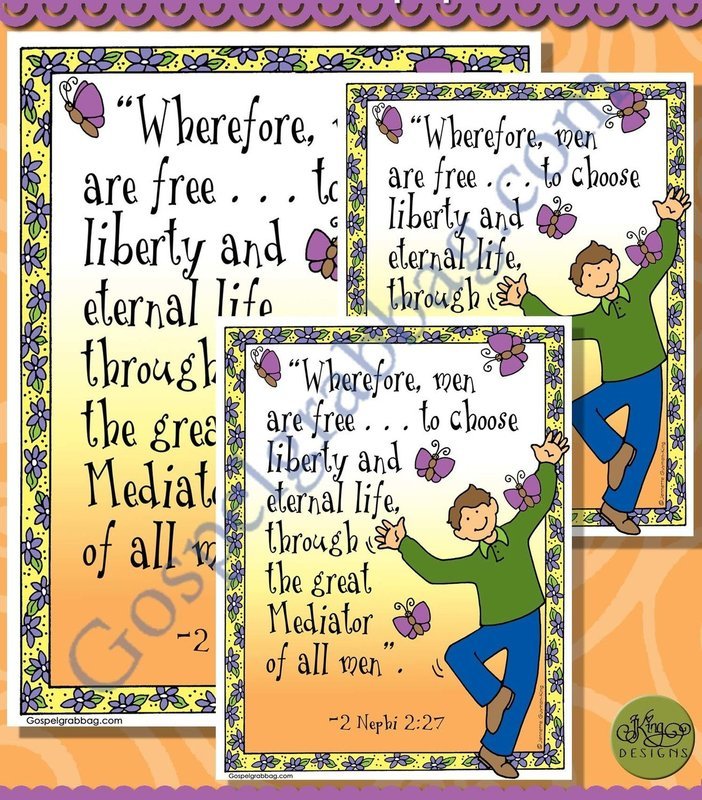 “Wherefore,
are free . . . to
liberty and
eternal life
through
the grea
Mediato
of all m
-2
Gospelgrabbag.com
“Wherefore, men
are free . . . to choose
liberty and
eternal life,
through
27
© Jennette Guymon-King
“Wherefore, men
are free . . . to choose
liberty and
eternal life,
through
the great
Mediator
of all men”.
-2 Nephi 2:27
© Jennette Guymon-King
Gospelgrabbag.com
Gospelgrabbag.com
JKing
DESIGNS